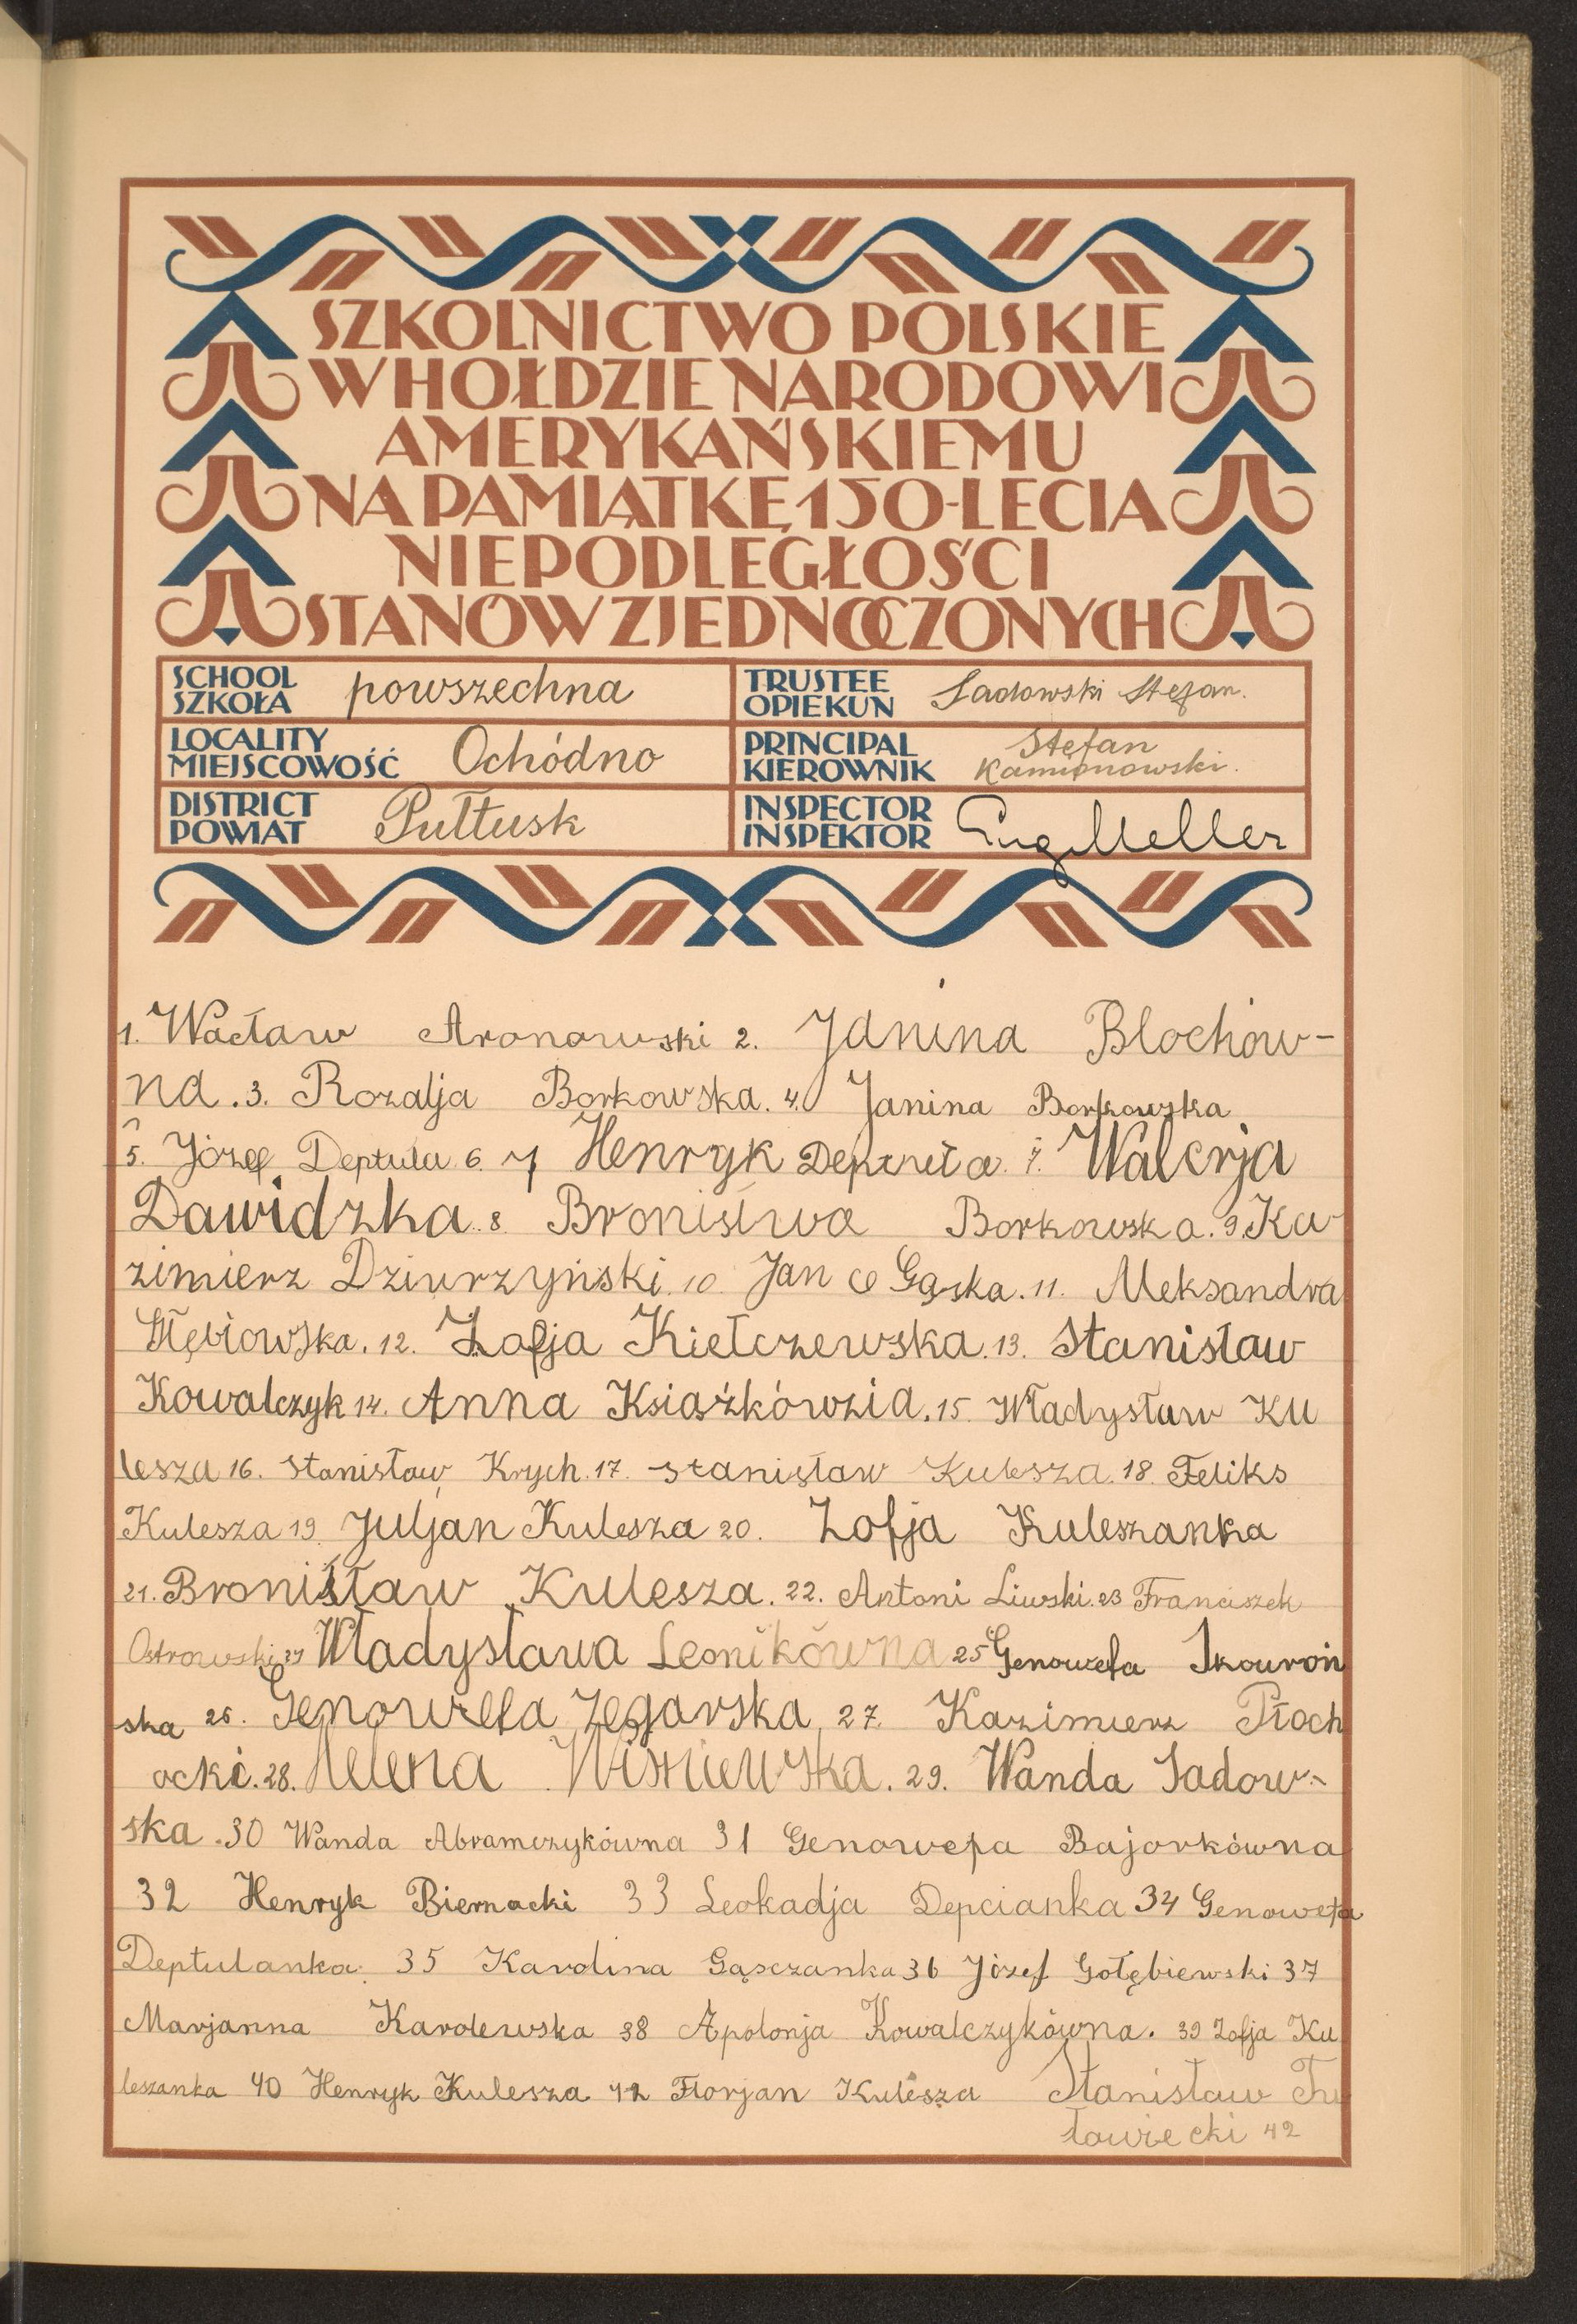 SZKOLNICTWO POLSKIE
W HOŁDZIE NARODOWI
AMERYKAŃSKIEMU
NA PAMIĄTKĘ 150-LECIA
NIEPODLEGŁOŚCI
STANÓW ZJEDNOCZONYCH
SCHOOL
SZKOŁA powszechna
TRUSTEE
OPIEKUN Sadowski Stefan.
LOCALITY
MIEJSCOWOŚĆ Ochódno
PRINCIPAL
KIEROWNIK Stefan
Kamionowski.
DISTRICT
POWIAT Pułtusk
INSPECTOR
INSPEKTOR Eug. Meller
1. Wacław Aronowski 2. Janina Blochów-
na. 3. Rozalja Borkowska. 4. Janina Borkowska
5. Józef Deptuła 6. Henryk Deptuła 7. Walerja
Dawidzka. 8 Bronisłwa Borkowska. 9. Ka
zimierz Dziurzyński. 10. Jan Gąska. 11. Aleksandra
12. Zofja Kiełczewska. 13. Stanisław
Kowalczyk 14. Anna 15. Władysław Ku
lesza 16. Stanisław Krych. 17. Stanisław Kulesza. 18. Feliks
Kulesza 19. Juljan Kulesza 20. Zofja Kuleszanka
21. Bronisław Kulesza. 22. Antoni Liwski. 23 Franciszek
Ostrowski. Władysława Leonikówna 25 Genowefa Skowroń
ska 26. Genowefa Zegarska 27. Kazimierz Płoch
ocki. 28. Helena Wiśniewska. 29. Wanda Sadow-
ska. 30 Wanda Abramczykówna 31 Genowefa Bajorkówna
32 Henryk Biernacki 33 Leokadja Depcianka 34 Genowefa
Deptulanka. 35 Karolina Gąsczanka 36 Józef Gołębiewski 37
Marjanna Karolewska 38 Apolonja Kowalczykówna. 39 Zofja Ku
leszanka 40 Henryk Kulesza Florjan Kulesza Stanisław Tu
ławiecki 42